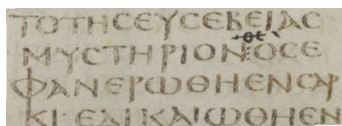 ΤΟΤΗСЕΥСЕΒΕΙΑС
ΜΥСΤΗΡΙΟΝΟСΕ
ΦΑΝΕΡΩΘΗΕΝСΑΡ
ΚΙ·ΕΔΙΚΑΙΩΘΗΕΝ